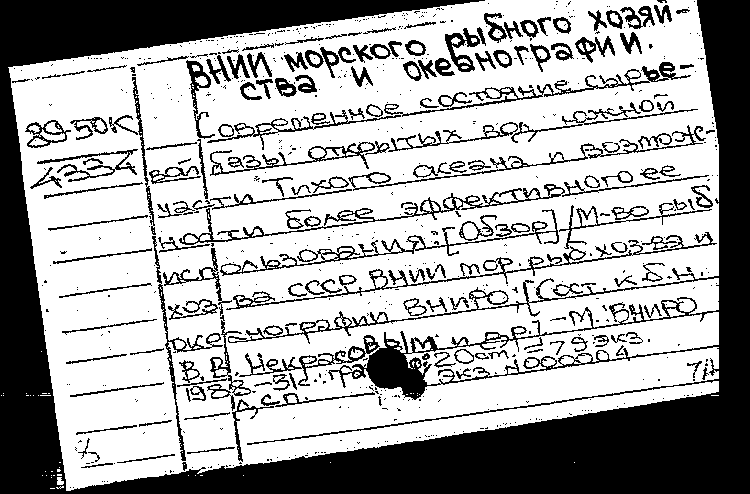 ВНИИ морского рыбного хозяй-
ства и океанографии.
89-50К
4334
Современное состояние сырье-
вой базы открытых вод южной
части Тихого океана и возмож-
ности более эффективного ее
использования: [Обзор] / М-во рыб.
хоз-ва СССР, ВНИИ мор. рыб. хоз-ва и
океанографии ВНИРО; [Сост. к.б.н.
В.В. Некрасовым и др.] - М.: ВНИРО,
1988 - 31с. 20см. - 79 экз.
Экз. N 000004
Д.с.п.